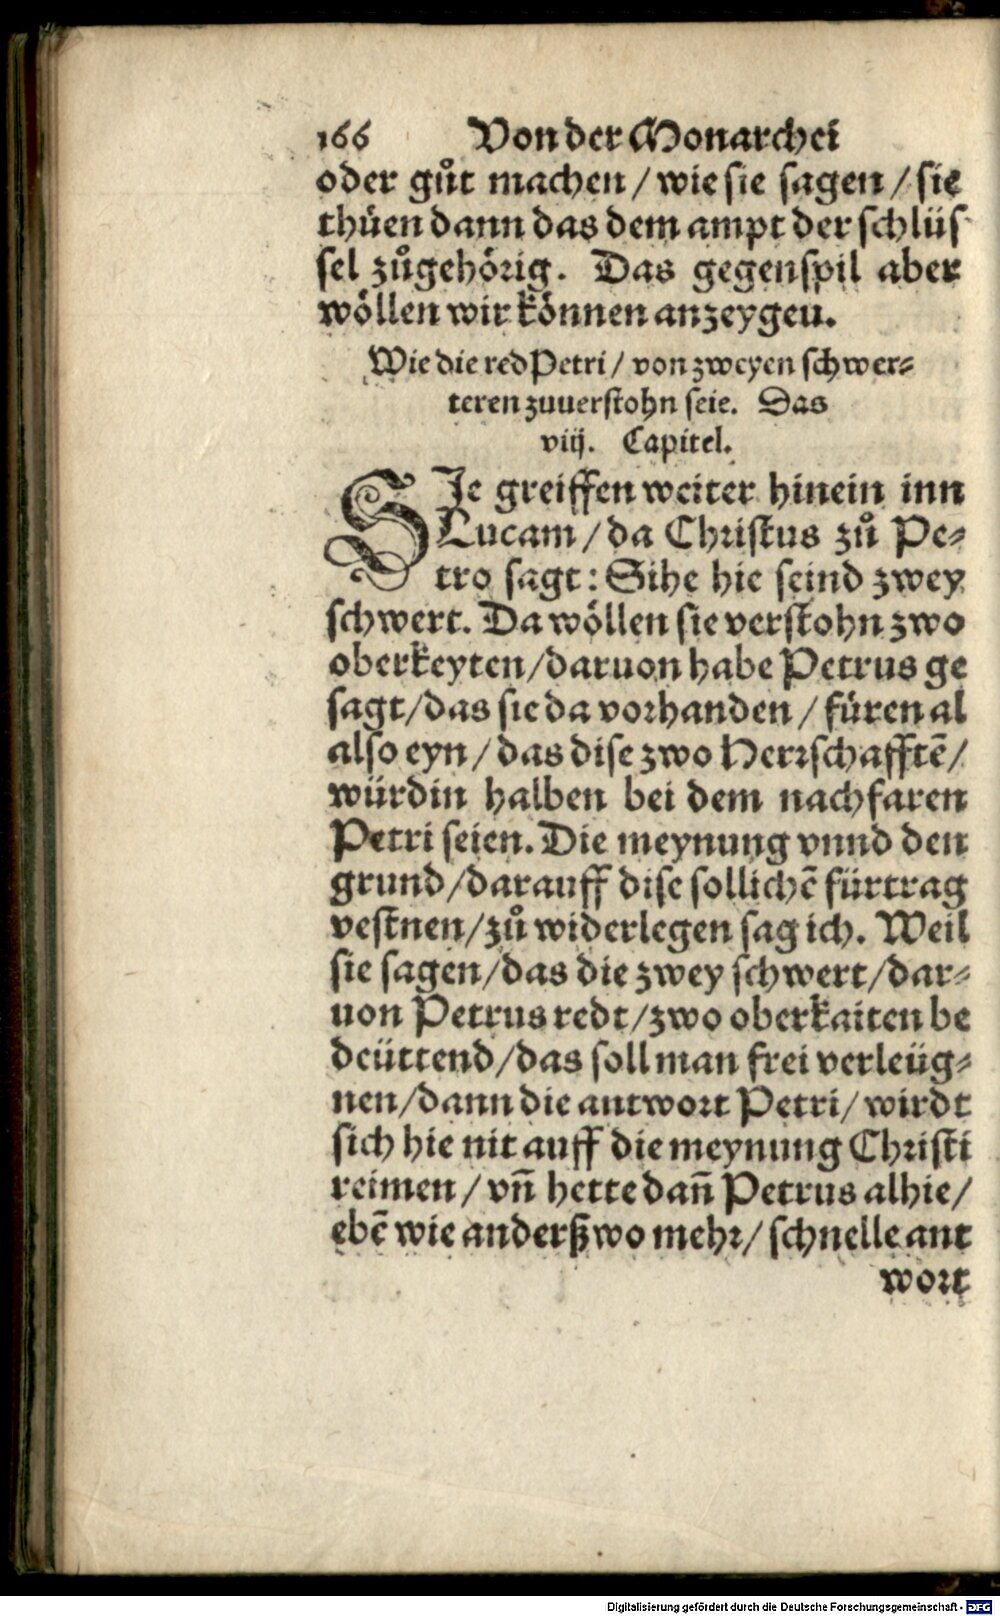 166 Von der Monarchei
oder gůt machen / wie sie sagen / sie
thüen dann das dem ampt der schlüs
sel zůgehörig. Das gegenspil aber
wöllen wir können anzeygeu.
Wie die red Petri / von zweyen schwer-
teren zuuerstohn seie. Das
viij. Capitel.
SIe greiffen weiter hinein inn
Lucam / da Christus zů Pe-
tro sagt: Sihe hie seind zwey
schwert. Da wöllen sie verstohn zwo
oberkeyten / daruon habe Petrus ge
sagt / das sie da vorhanden / füren al
also eyn / das dise zwo Herrschafftē /
würdin halben bei dem nachfaren
Petri seien. Die meynung vnnd den
grund / darauff dise sollichē fürtrag
vestnen / zů widerlegen sag ich. Weil
sie sagen / das die zwey schwert / dar-
uon Petrus redt / zwo oberkaiten be
deüttend / das soll man frei verleüg-
nen / dann die antwort Petri / wirdt
sich hie nit auff die meynung Christi
reimen / vn̄ hette dan̄ Petrus alhie /
ebē wie anderßwo mehr / schnelle ant
wort
Digitalisierung gefördert durch die Deutsche Forschungsgemeinschaft - DFG